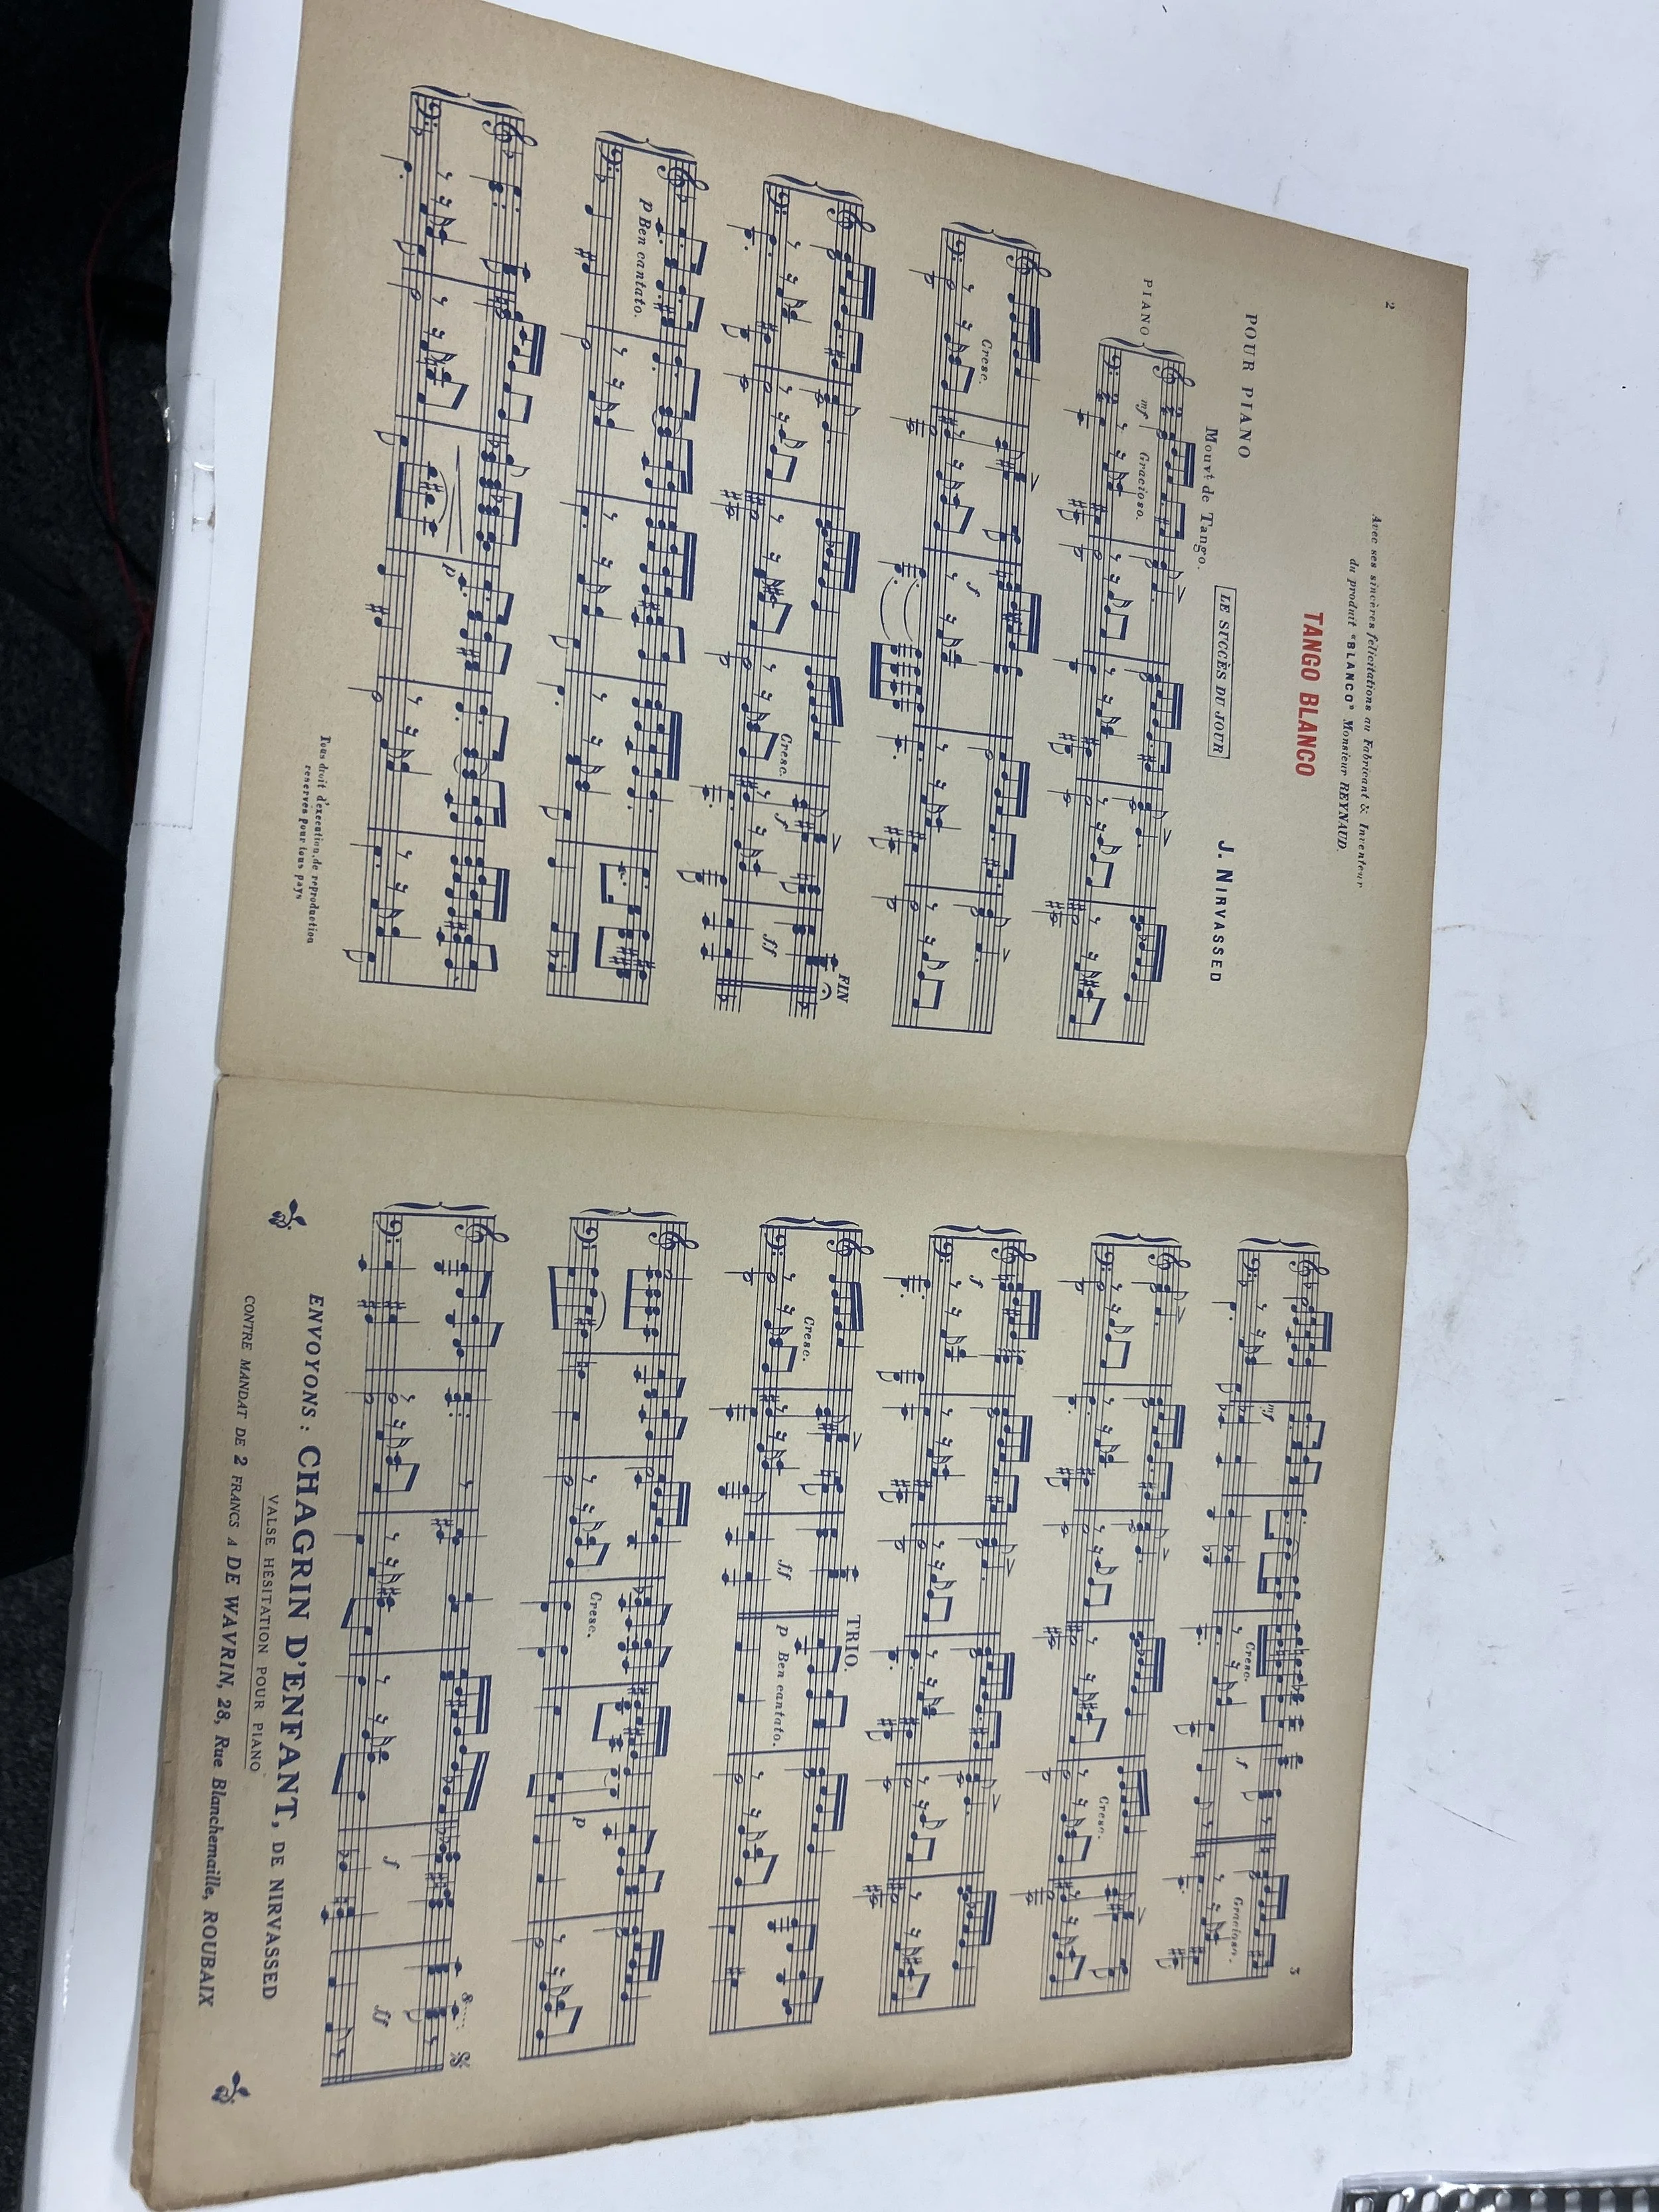 2
Avec ses sincères félicitations au Fabricant & Inventeur
du produit "BLANCO" Monsieur REYNAUD.
TANGO BLANCO
POUR PIANO
LE SUCCÈS DU JOUR
J. NIRVASSED
Mouvt de Tango.
PIANO
mf Gracioso.
Cresc. f
Cresc. f ff FIN
p Ben cantato.
p
Tous droit d'execution, de reproduction
reservés pour tous pays
3
mf Cresc. f Gracioso.
Cresc.
f
Cresc. ff TRIO. p Ben cantato.
Cresc. p
f ff 8
ENVOYONS : CHAGRIN D'ENFANT, DE NIRVASSED
VALSE HÉSITATION POUR PIANO
CONTRE MANDAT DE 2 FRANCS A DE WAVRIN, 28, Rue Blanchemaille, ROUBAIX